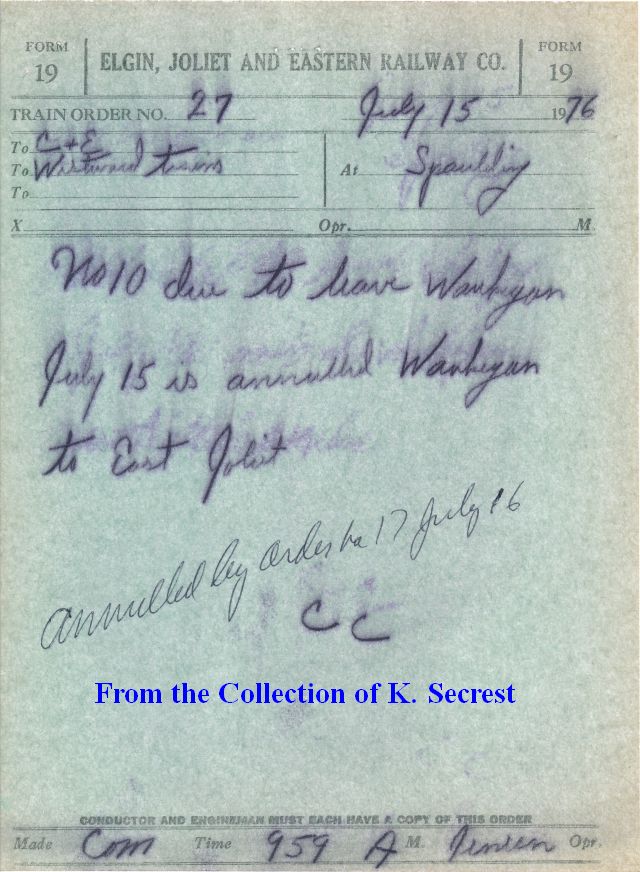 FORM 19
ELGIN, JOLIET AND EASTERN RAILWAY CO.
FORM 19
TRAIN ORDER NO. 27 July 15 1976
To C+E
To Westward trains At Spaulding
To
X Opr. M
No 10 due to leave Waukegan
July 15 is annulled Waukegan
to East Joliet
annulled by order no 17 July 16
C C
From the Collection of K. Secrest
CONDUCTOR AND ENGINEMAN MUST EACH HAVE A COPY OF THIS ORDER
Made Com Time 959 A M. Jensen Opr.